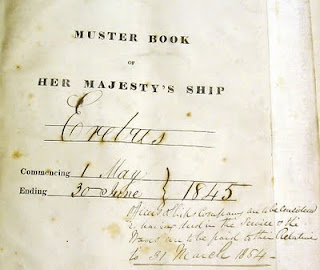 MUSTER BOOK
OF
HER MAJESTY'S SHIP
Erebus
Commencing 1 May
Ending 30 June } 1845
Officers & Ship's Company are to be considered
as having died in the Service & the
Wages are to be paid to their Relatives
to 31 March 1854